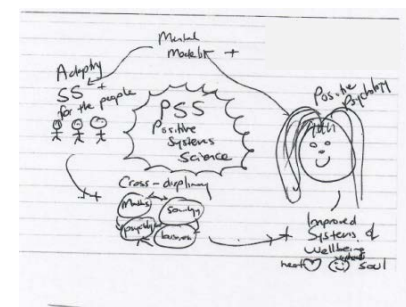 Mental
Models +
Adapting
SS +
for the people
PSS
Positive
Systems
Science
Positive
Psychology
Cross-disciplinary
Maths
Sociology
psychology
business
+
+
Improved
Systems &
Wellbeing
heart
soul